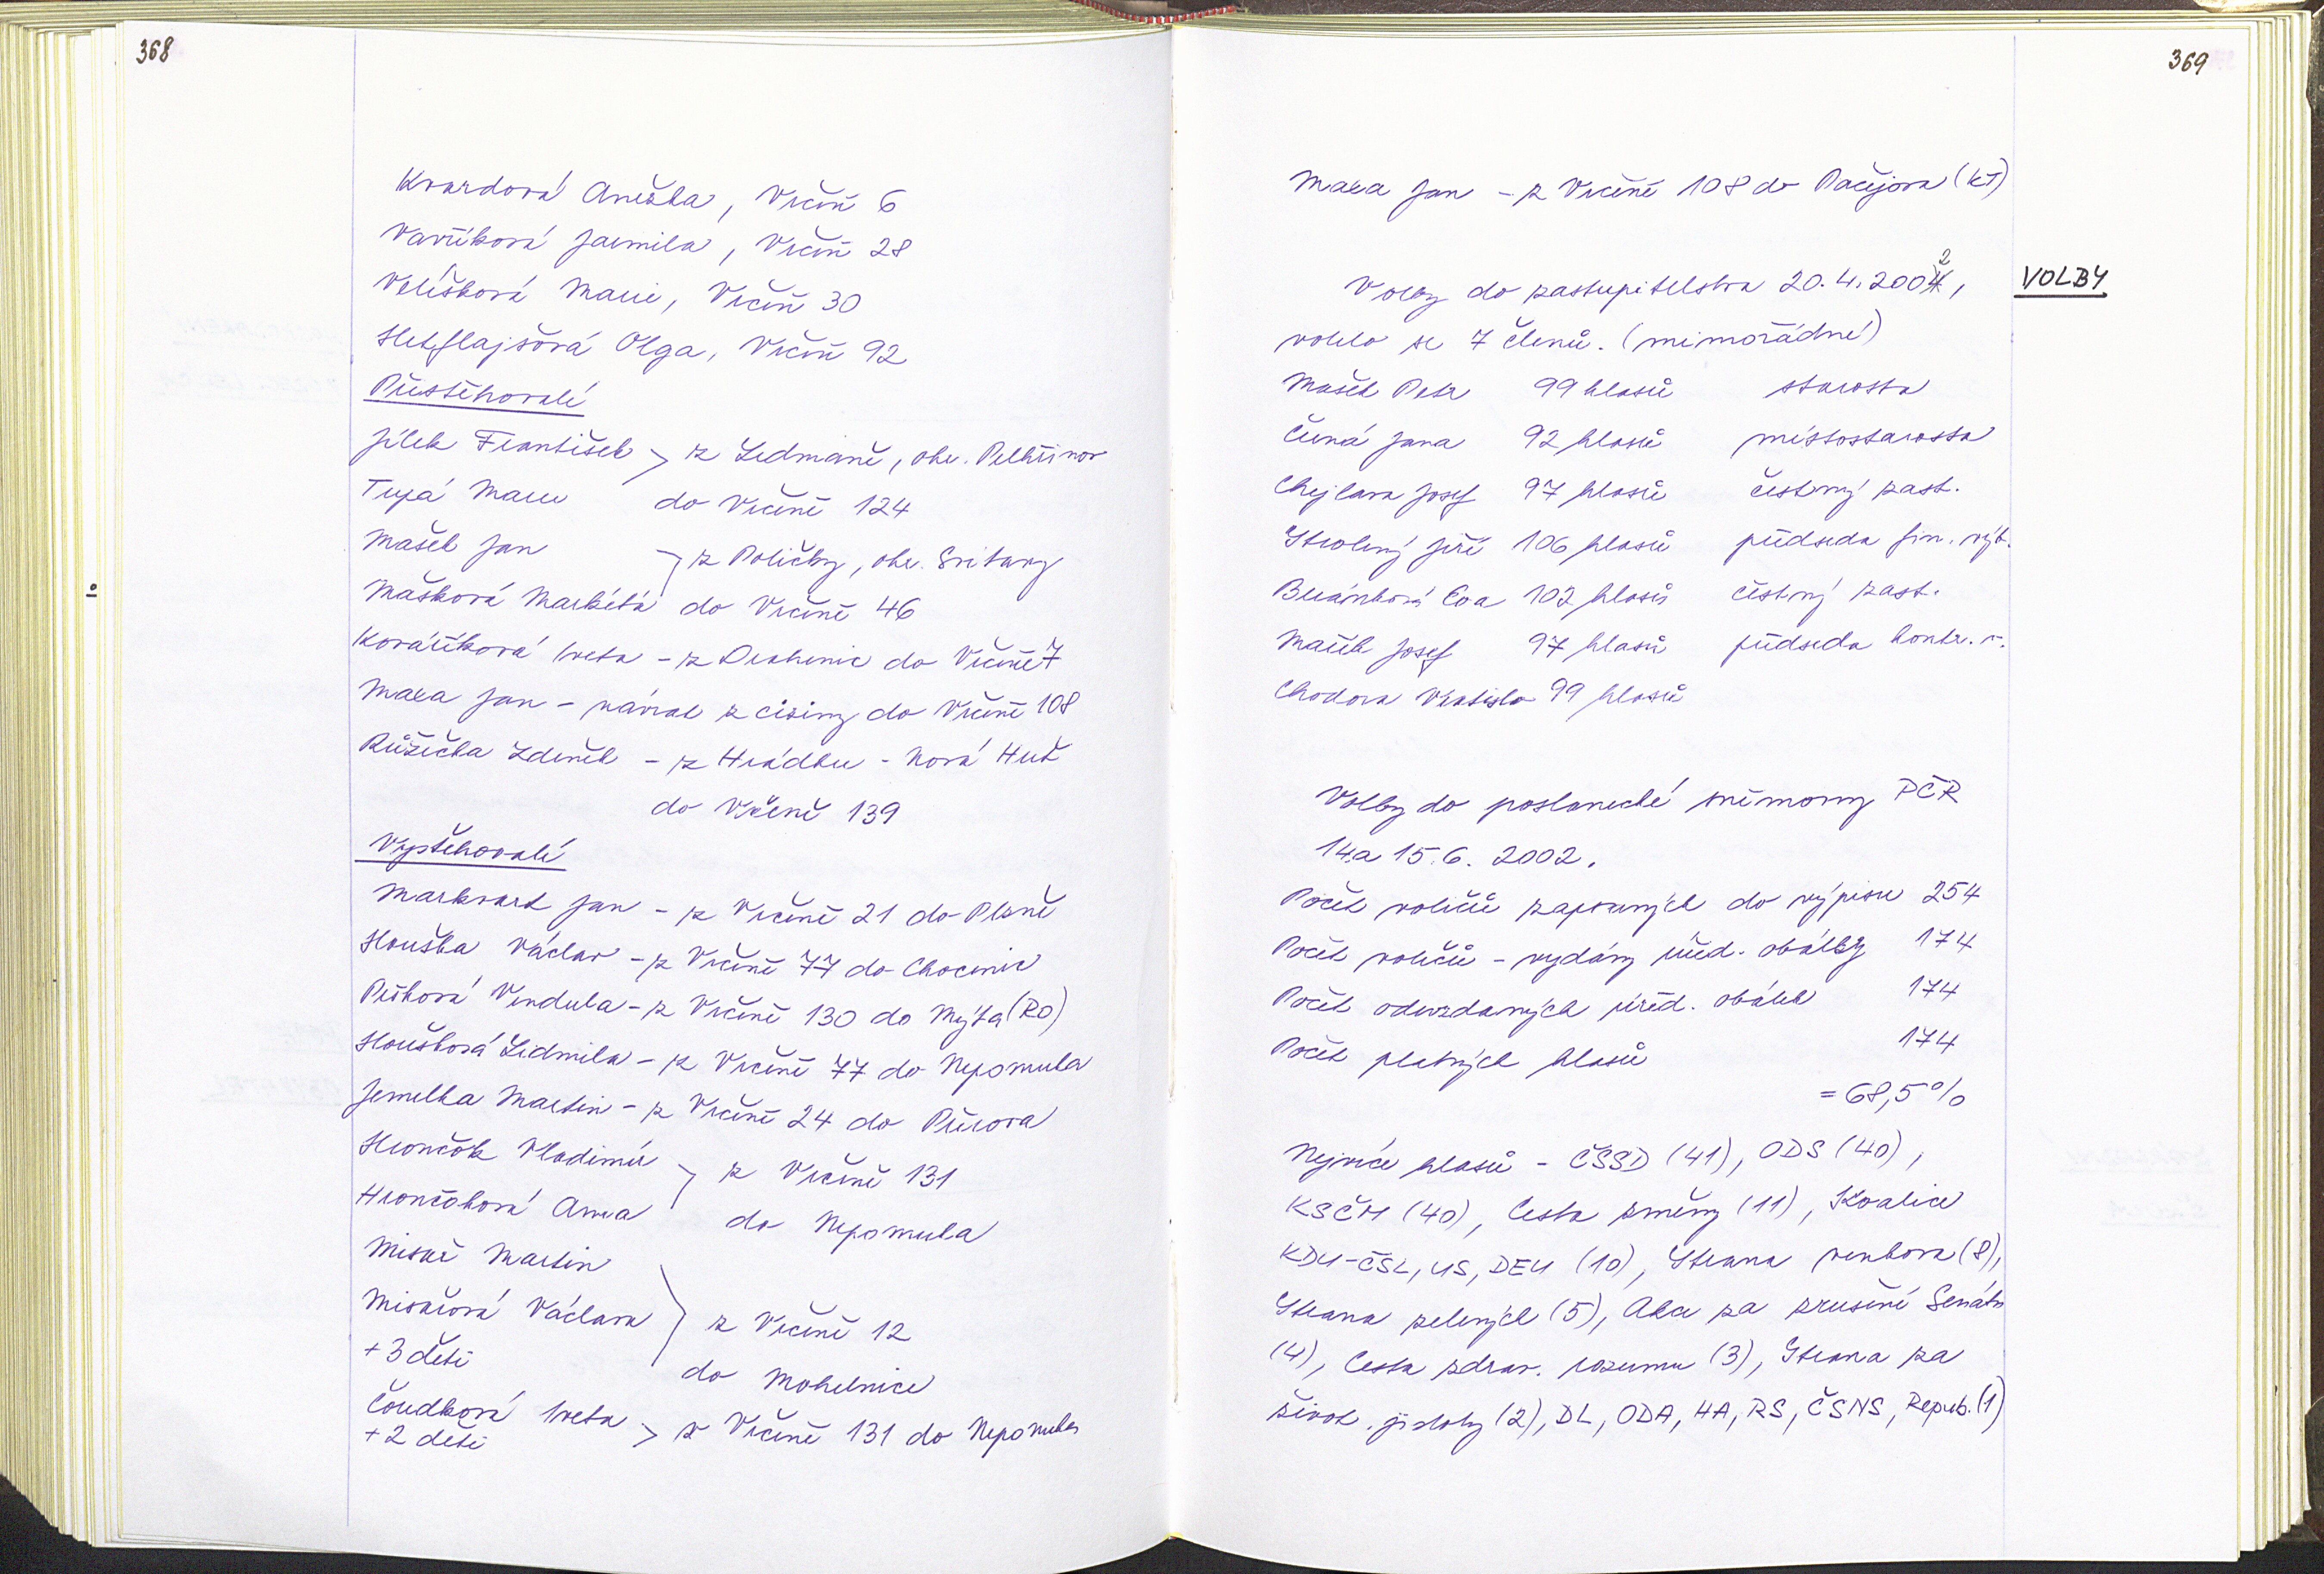 368
Kvardová Anežka, Vrčeň 6
Vavříková Jarmila, Vrčeň 28
Velíšková Marie, Vrčeň 30
Hetflajšová Olga, Vrčeň 92
Přistěhovalí
Jílek František > z Ledmaně, okr. Pelhřimov
Tupá Marie do Vrčeně 124
Mašek Jan
z Poličky, okr. Svitavy
Mašková Markéta do Vrčeně 46
Kovaříková Iveta - z Drahenic do Vrčeně 7
Maxa Jan - návrat z ciziny do Vrčeně 108
Růžička Zdeněk - z Hrádku - Nová Huť
do Vrčeně 139
Vystěhovalí
Markvart Jan - z Vrčeně 21 do Plzně
Houška Václav - z Vrčeně 77 do Chocenic
Vendula - z Vrčeně 130 do Mýta (RO)
Houšková Lidmila - z Vrčeně 77 do Nepomuka
Jemelka Martin - z Vrčeně 24 do Přerova
Hrončók Vladimír
z Vrčeně 131
Hrončoková Anna
do Nepomuka
Martin
Václava
z Vrčeně 12
+ 3 děti
do Mohelnice
Čoudková Iveta > z Vrčeně 131 do Nepomuka
+ 2 děti
369
Maxa Jan - z Vrčeně 108 do Pačejova (KT)
VOLBY
Volby do zastupitelstva 20. 4. 2002,
volilo se 7 členů. (mimořádné)
Mašek Petr 99 hlasů starosta
Černá Jana 92 hlasů místostarosta
Chejlava Josef 97 hlasů čestný zast.
Skolený Jiří 106 hlasů předseda fin. výb.
Beránková Eva 102 hlasů čestný zast.
Mašek Josef 97 hlasů předseda kontr. v.
Chodora Vratislav 99 hlasů
Volby do poslanecké sněmovny PČR
14. a 15. 6. 2002.
Počet voličů zapsaných do výpisu 254
Počet voličů - vydány úřed. obálky 174
Počet odevzdaných úřed. obálek 174
Počet platných hlasů 174
= 68,5 %
Nejvíce hlasů - ČSSD (41), ODS (40),
KSČM (40), Cesta změny (11), Koalice
KDU-ČSL, US, DEU (10), Strana venkova (8),
Strana zelených (5), Akce za zrušení Senátu
(4), Cesta zdrav. rozumu (3), Strana za
život. jistoty (2), DL, ODA, HA, RS, ČSNS, Repub. (1)